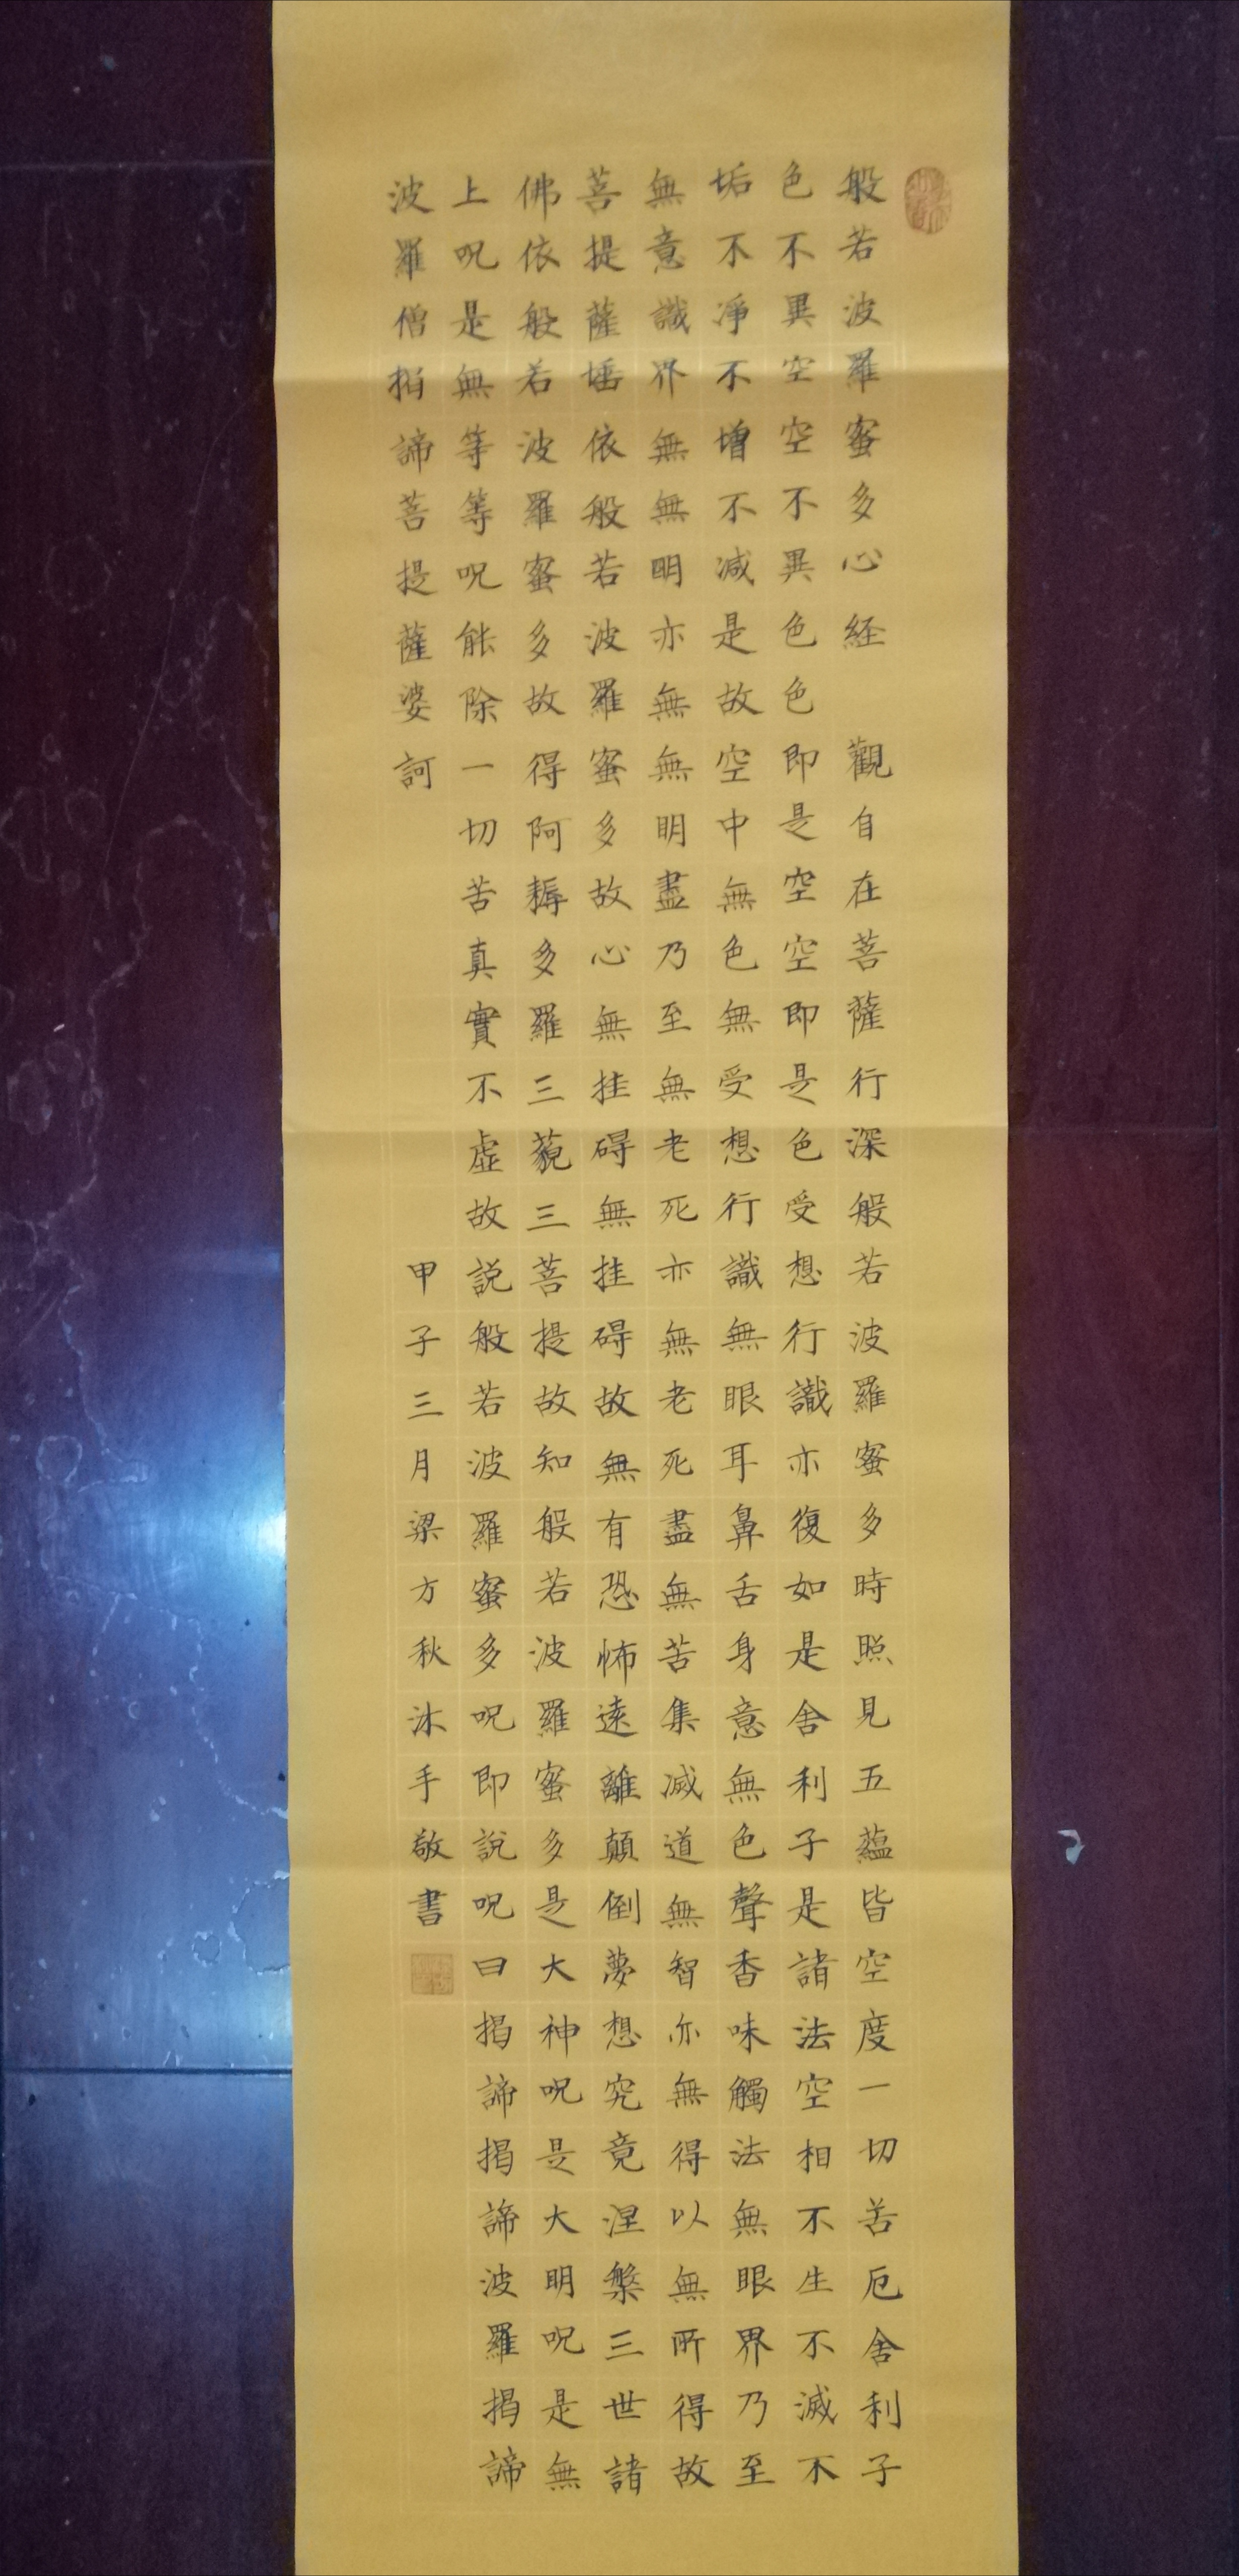 般若波羅蜜多心経 觀自在菩薩行深般若波羅蜜多時照見五蘊皆空度一切苦厄舍利子
色不異空空不異色色即是空空即是色受想行識亦復如是舍利子是諸法空相不生不滅不
垢不淨不增不減是故空中無色無受想行識無眼耳鼻舌身意無色聲香味觸法無眼界乃至
無意識界無無明亦無無明盡乃至無老死亦無老死盡無苦集滅道無智亦無得以無所得故
菩提薩埵依般若波羅蜜多故心無挂碍無挂碍故無有恐怖遠離顛倒夢想究竟涅槃三世諸
佛依般若波羅蜜多故得阿耨多羅三藐三菩提故知般若波羅蜜多是大神呪是大明呪是無
上呪是無等等呪能除一切苦真實不虛故説般若波羅蜜多呪即說呪曰揭諦揭諦波羅揭諦
波羅僧揭諦菩提薩婆訶
甲子三月梁方秋沐手敬書